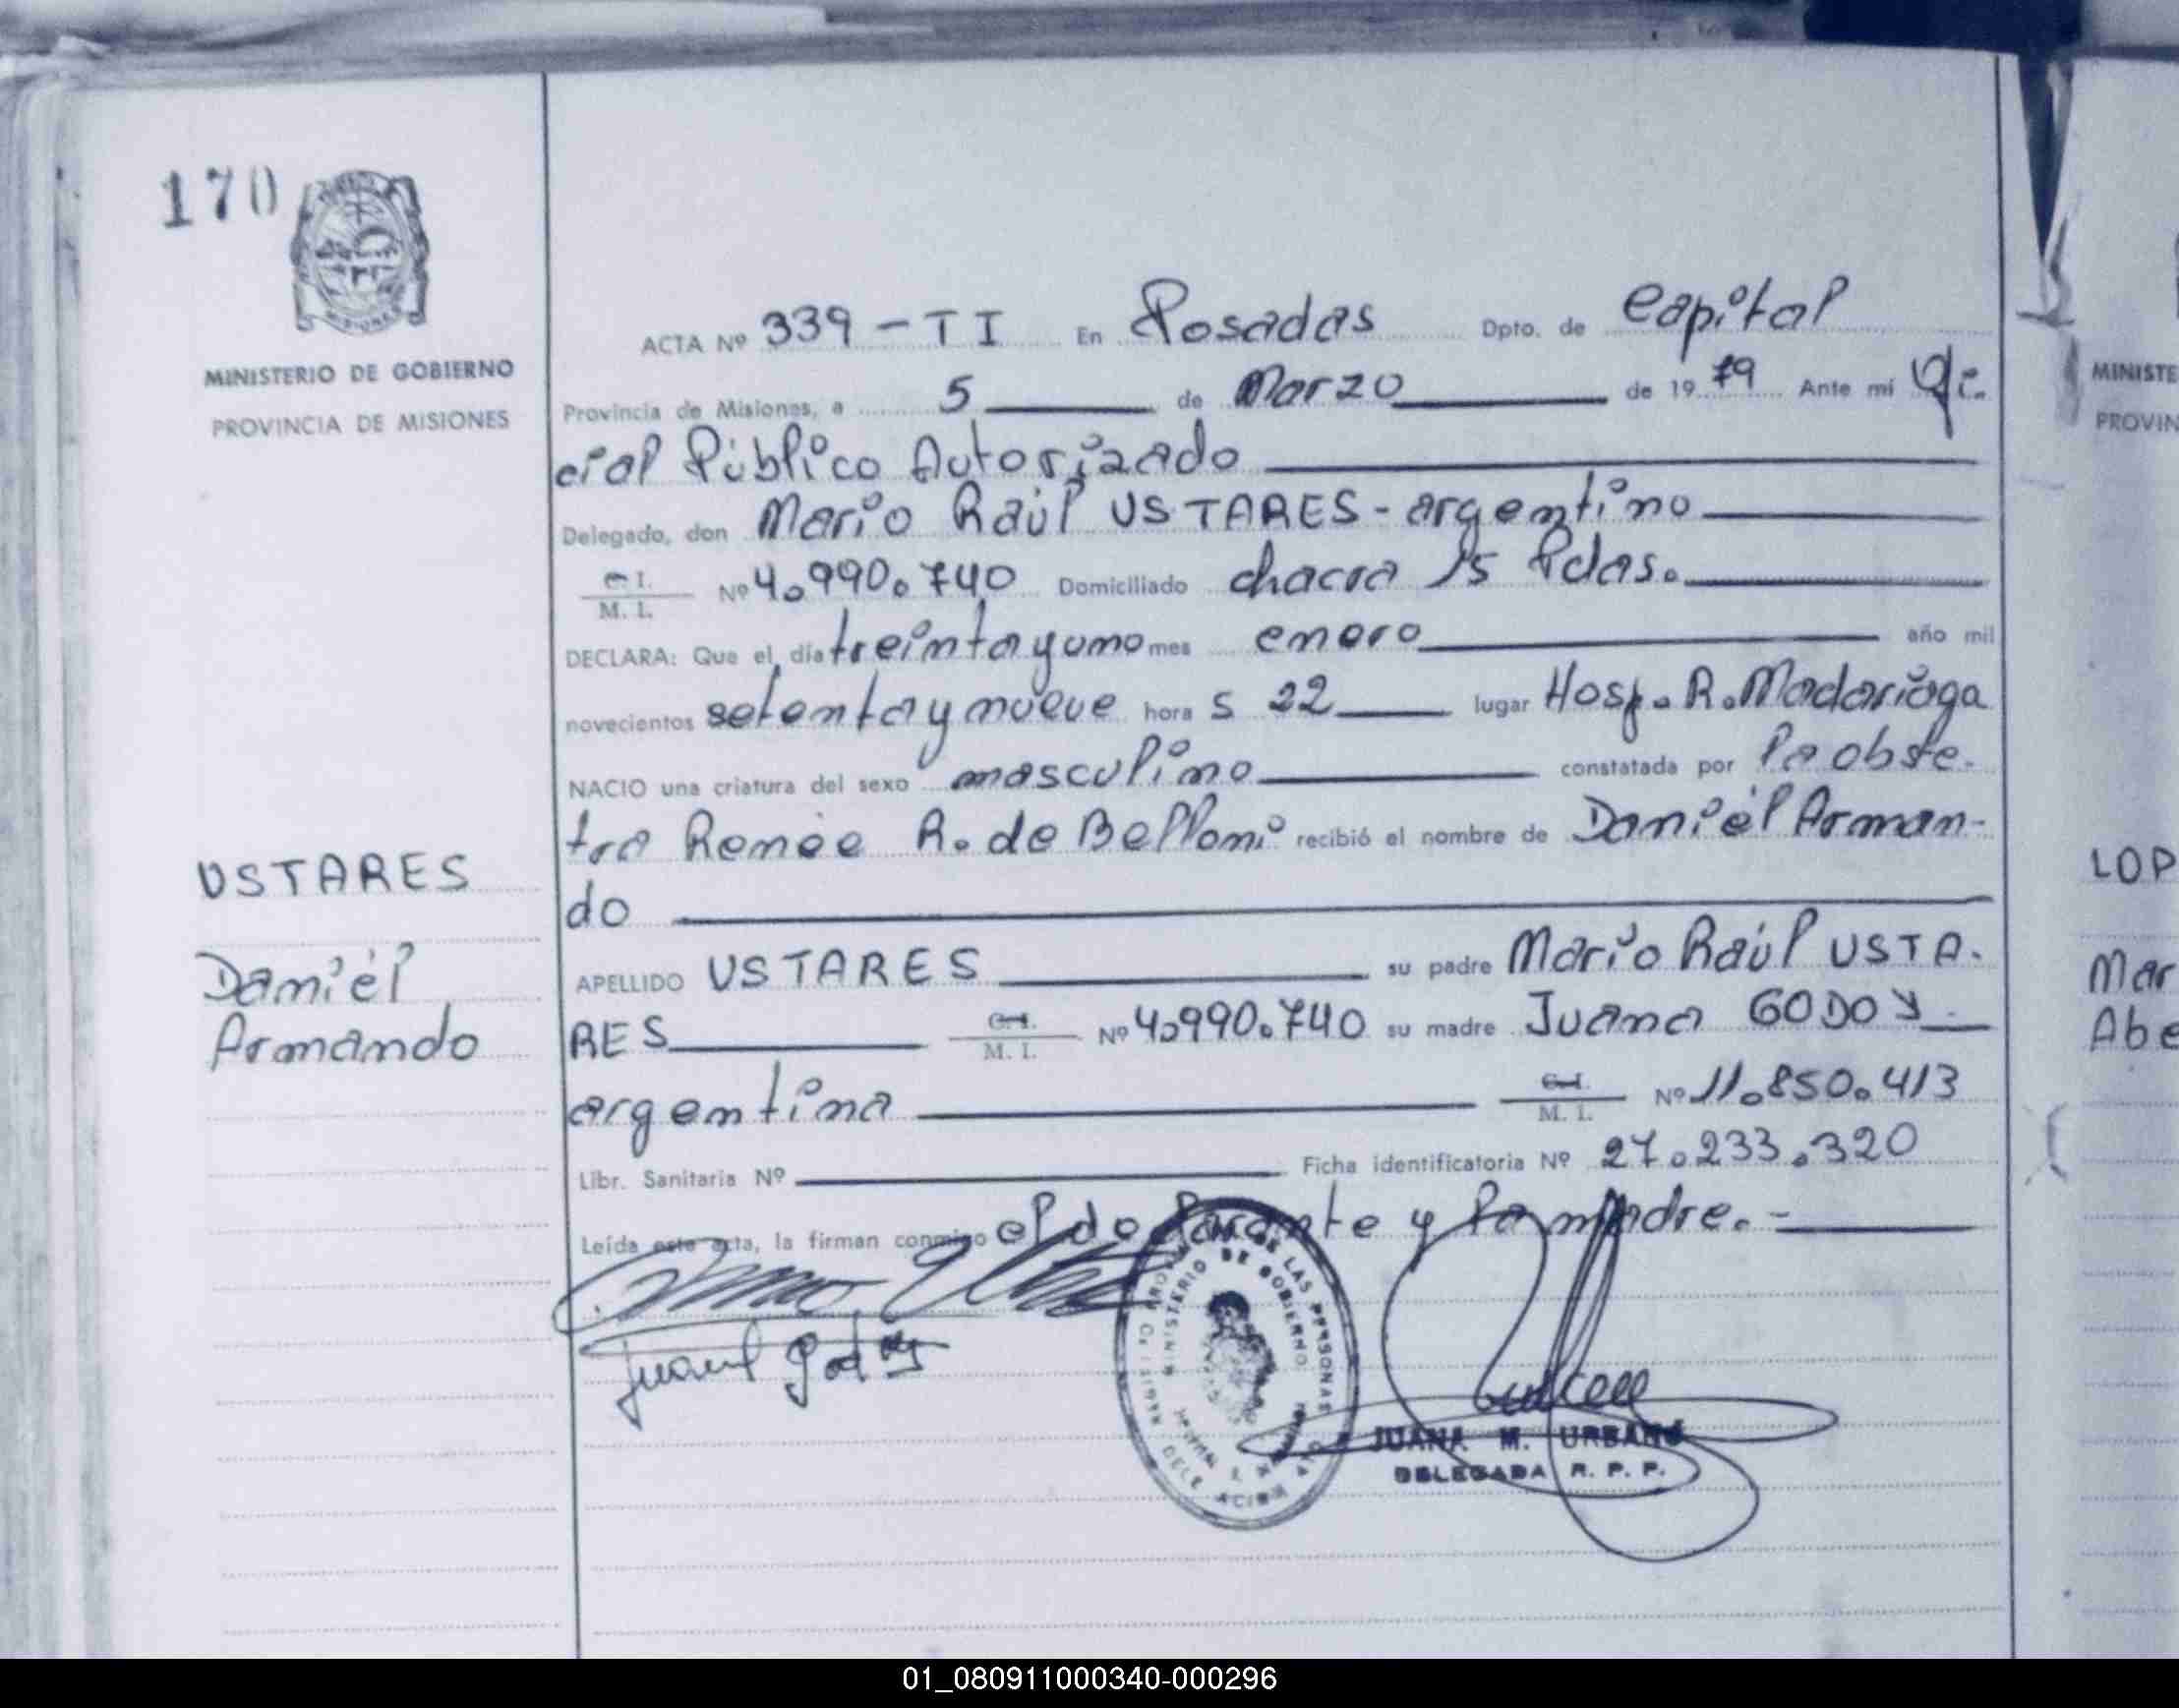 170
MISIONES
MINISTERIO DE GOBIERNO
PROVINCIA DE MISIONES
USTARES
Daniél
Armando
ACTA Nº 339-TI En Posadas Dpto. de Capital
Provincia de Misiones, a 5 de Marzo de 1979 Ante mí Ofi-
cial Público Autorizado
Delegado, don Mario Raúl USTARES - argentino
C. I.
M. I. Nº 4.990.740 Domiciliado chacra 15 Pdas.
DECLARA: Que el día treinta y uno mes enero año mil
novecientos setenta y nueve hora s 22 lugar Hosp. R. Madariaga
NACIO una criatura del sexo masculino constatada por la obste-
tra Renée R. de Belloni recibió el nombre de Daniél Arman-
do
APELLIDO USTARES su padre Mario Raúl USTA-
RES C. I. M. I. Nº 4.990.740 su madre Juana GODOY
argentina C. I. M. I. Nº 11.850.413
Libr. Sanitaria Nº Ficha identificatoria Nº 27.233.320
Leída este acta, la firman conmigo el declarante y la madre. -
Juana Godoy
DE LAS PERSONAS
MINISTERIO DE GOBIERNO
JUANA M. URBANO
DELEGADA R. P. P.
MINISTE
PROVIN
LOP
Mar
Abe
01_080911000340-000296